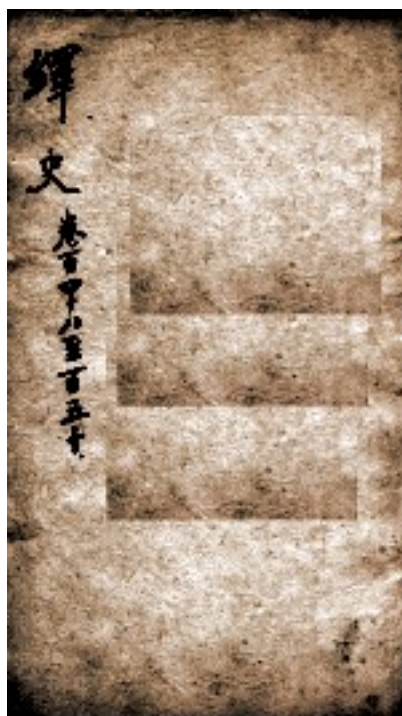 繹史
卷百四十八至百五十